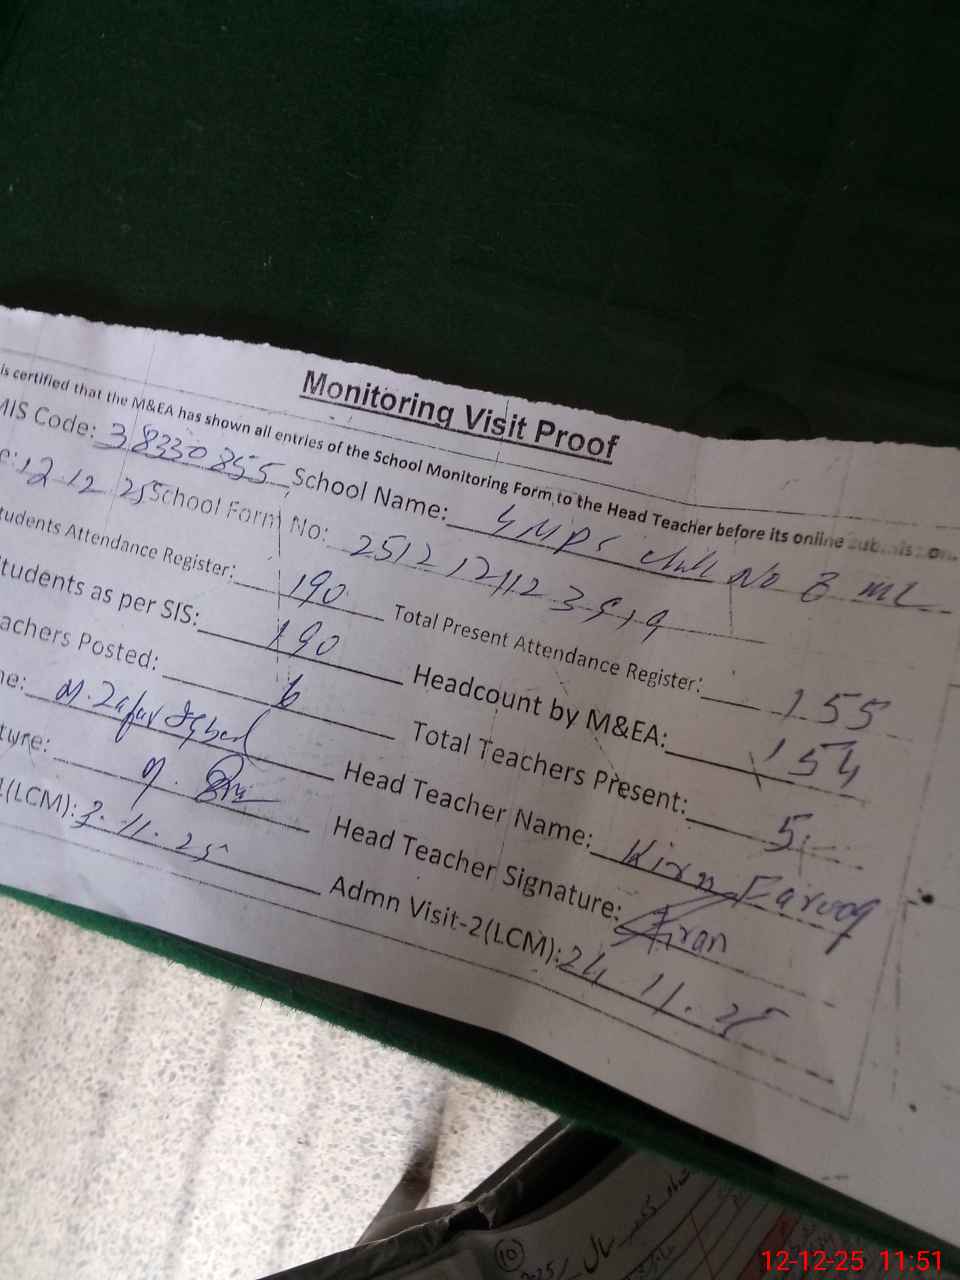 Monitoring Visit Proof
is certified that the M&EA has shown all entries of the School Monitoring Form to the Head Teacher before its online
MIS Code: 38330855 School Name: GMPS Chak No 8 ML
e: 12 12 25 School Form No: 2512121123519
tudents Attendance Register: 190 Total Present Attendance Register: 155
tudents as per SIS: 190 Headcount by M&EA: 154
achers Posted: 6 Total Teachers Present: 5
me: M. Zafar Iqbal Head Teacher Name: Kiran Farooq
ture: Head Teacher Signature: Kiran
1(LCM): 3.11.25 Admn Visit-2(LCM): 24.11.25
10
سال
12-12-25 11:51